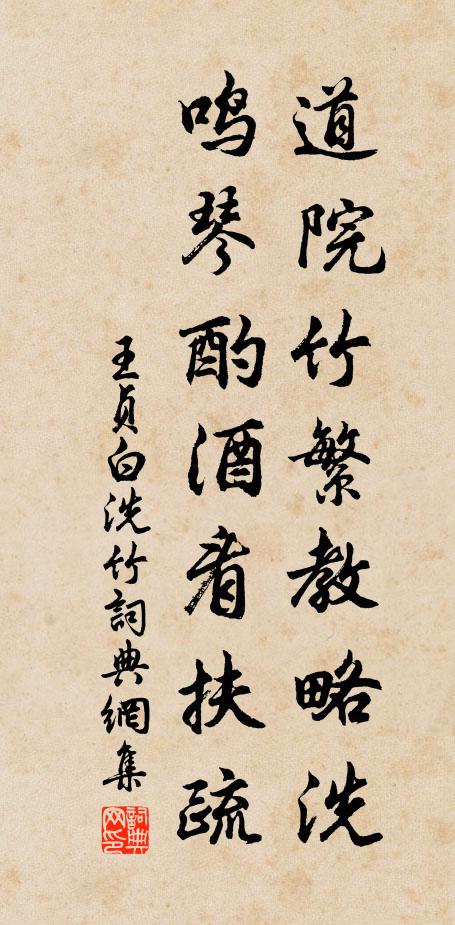 道院竹繁教略洗
鸣琴酌酒看扶疏
王貞白洗竹詞典網集
詞典网印